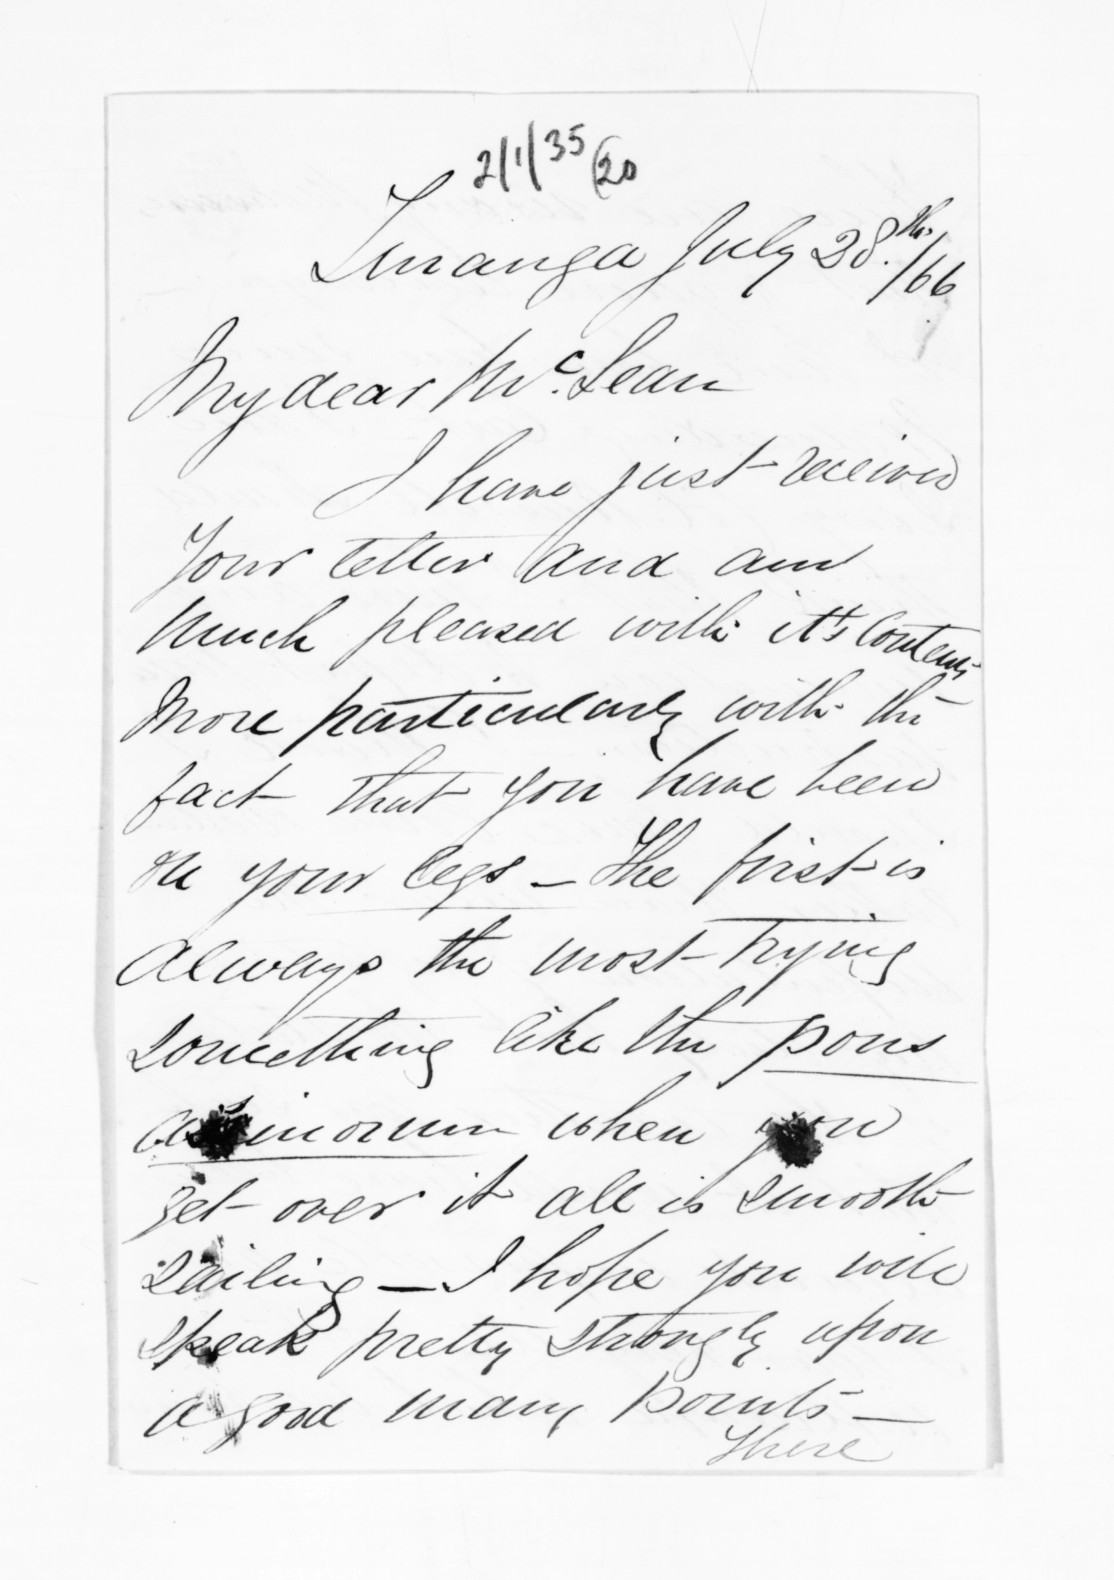 2/1/35 (20
Turanga July 28.th/66
My dear McLean
I have just received
Your letter and am
Much pleased with it's Contents
More particularly with the
fact that you have been
on your legs – The first is
always the most trying
something like the pons
assinorum when you
get over it all is smooth
sailing – I hope you will
speak pretty strongly upon
a good many points –
There